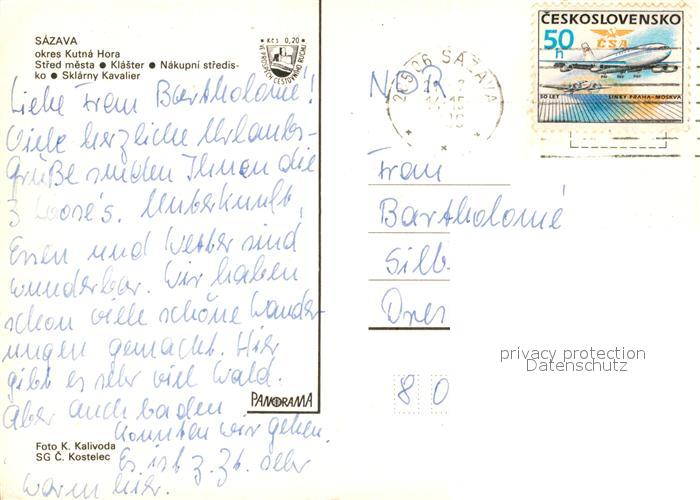 SÁZAVA
okres Kutná Hora
Střed města ● Klášter ● Nákupní středis-
ko ● Sklárny Kavalier
Kčs 0,20
VE PROSPĚCH CESTOVNÍHO RUCHU
Liebe Frau Bartholomé!
Viele herzliche Urlaubs-
grüße senden Ihnen die
3 Loose's. Unterkunft,
Essen und Wetter sind
wunderbar. Wir haben
schon viele schöne Wander-
ungen gemacht. Hier
gibt es sehr viel Wald.
Aber auch baden
konnten wir gehen.
Es ist z. Zt. sehr
warm hier.
PANORAMA
Foto K. Kalivoda
SG Č. Kostelec
NDR
285 06 SÁZAVA
ČESKOSLOVENSKO
50 h
ČSA
50 LET LINKY PRAHA-MOSKVA
Frau
Bartholomé
Silb.
Dres
80
privacy protection
Datenschutz